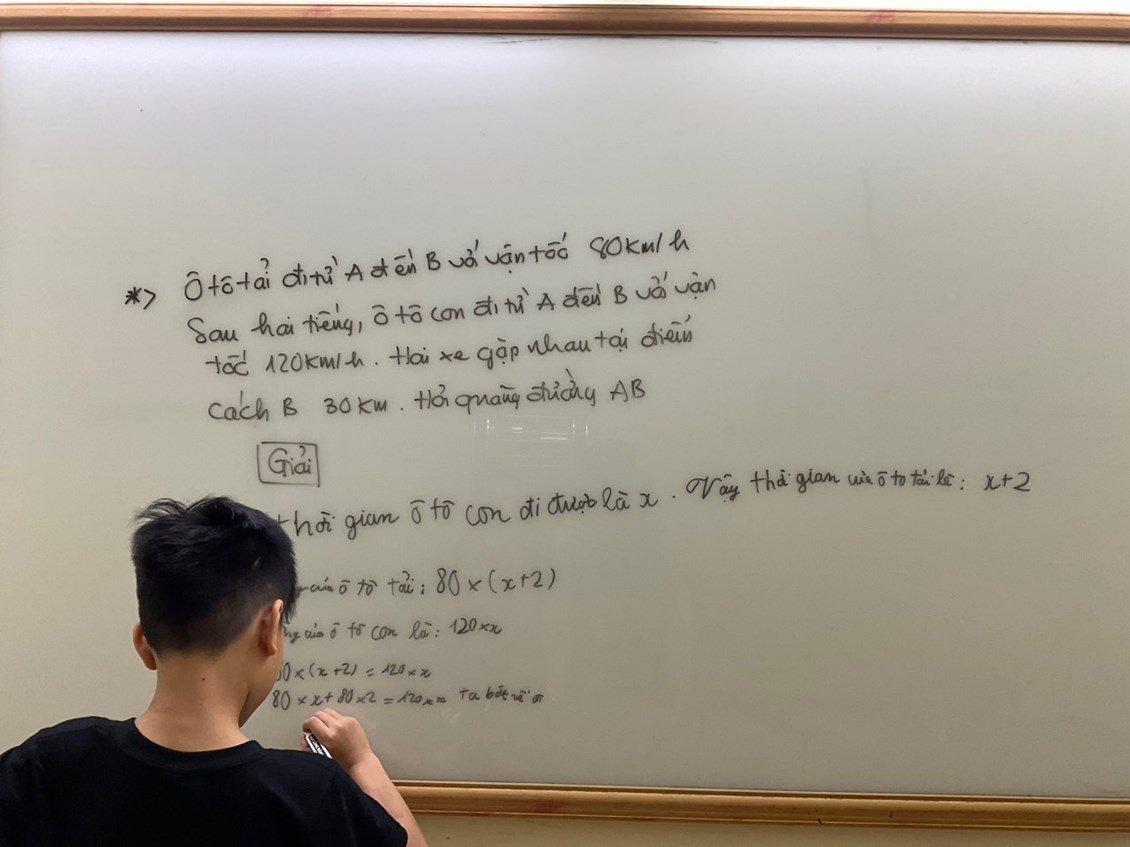 *> Ô tô tải đi từ A đến B với vận tốc 80km/h
Sau hai tiếng, ô tô con đi từ A đến B với vận
tốc 120km/h. Hai xe gặp nhau tại điểm
cách B 30km. Hỏi quãng đường AB
Giải
thời gian ô tô con đi được là x. Vậy thời gian của ô tô tải là: x+2
của ô tô tải: 80 × (x+2)
của ô tô con là: 120×x
0×(x+2) = 120×x
80 × x + 80 × 2 = 120×x ta bớt